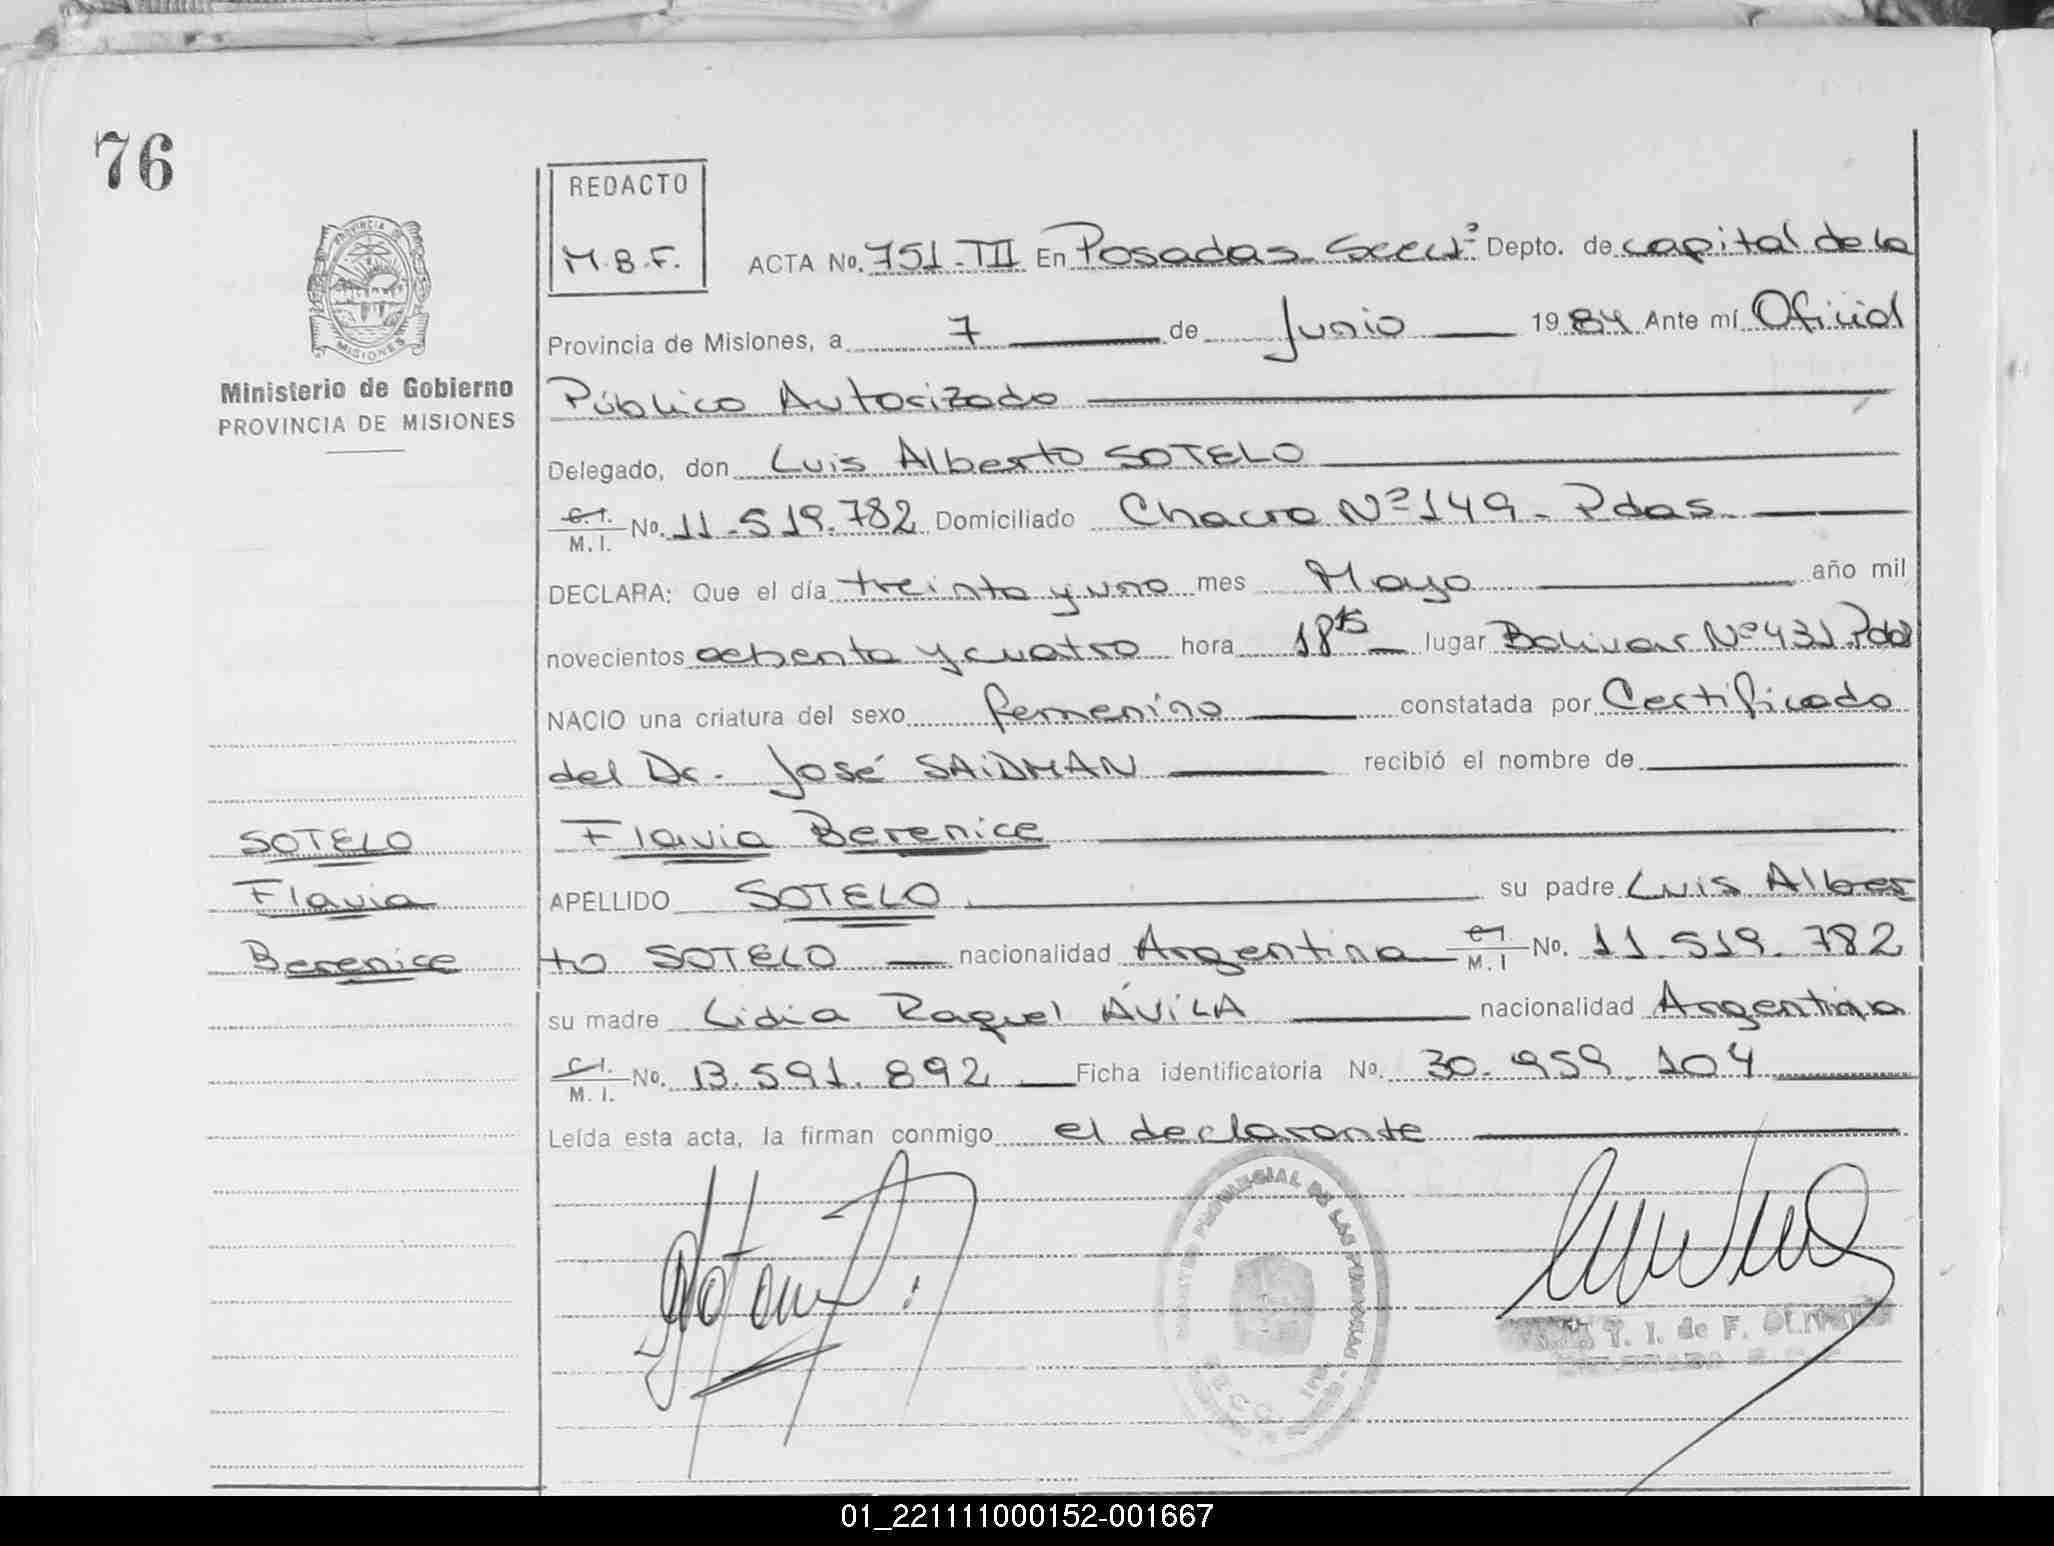 76
REDACTO
M.B.F.
PROVINCIA DE
MISIONES
Ministerio de Gobierno
PROVINCIA DE MISIONES
ACTA No. 751-III En Posadas Secc1ª Depto. de Capital de la
Provincia de Misiones, a 7 de Junio 1984 Ante mí Oficial
Público Autorizado
Delegado, don Luis Alberto SOTELO
C.I. M.I. No. 11.519.782 Domiciliado Chacra Nº149 - Pdas.
DECLARA: Que el día treinta y uno mes Mayo año mil
novecientos ochenta y cuatro hora 18 15 lugar Bolivar Nº431 Pdas
NACIO una criatura del sexo femenino constatada por Certificado
del Dr. José SAIDMAN recibió el nombre de
Flavia Berenice
APELLIDO SOTELO su padre Luis Alber
to SOTELO nacionalidad Argentina C.I. M.I No. 11.519.782
su madre Lidia Raquel ÁVILA nacionalidad Argentina
C.I. M.I. No. 13.591.892 Ficha identificatoria No. 30.959.104
Leída esta acta, la firman conmigo el declarante
SOTELO
Flavia
Berenice
PROVINCIAL DE LAS PERSONAS
T. I. de F.
01_221111000152-001667